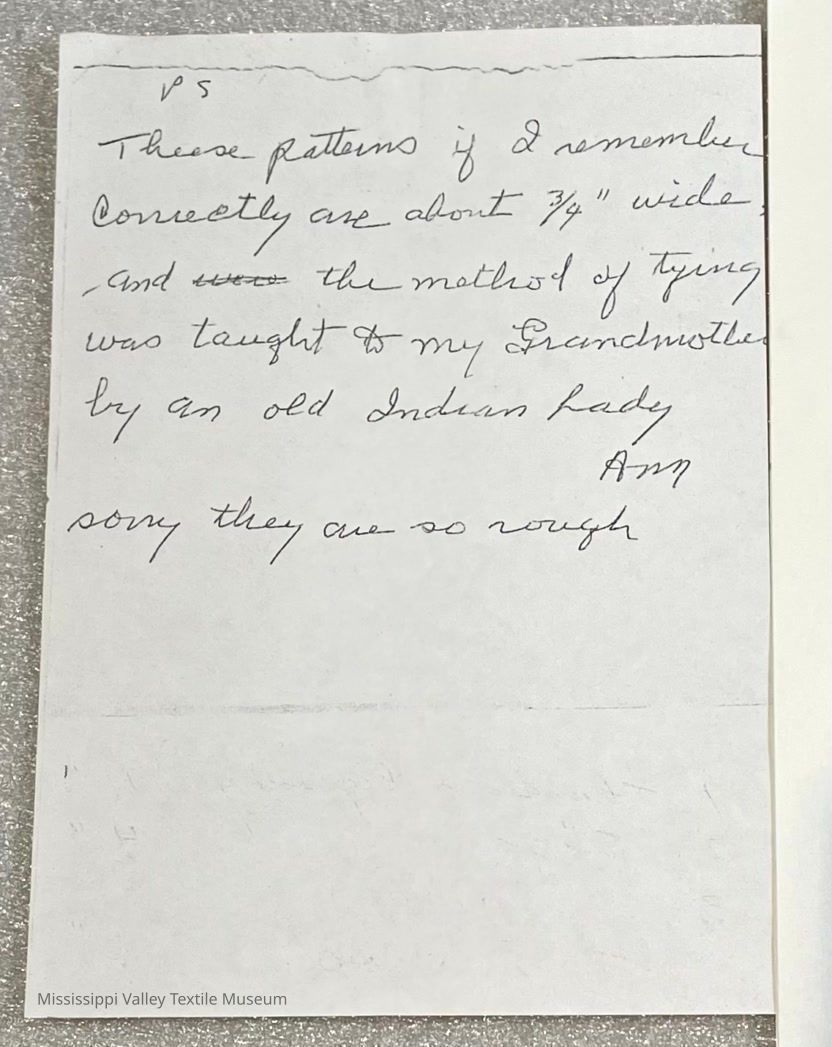 P S
Theese patterns if I remember
Correctly are about 3/4" wide,
and were the method of tying
was taught to my Grandmother
by an old Indian Lady
Ann
sorry they are so rough
Mississippi Valley Textile Museum